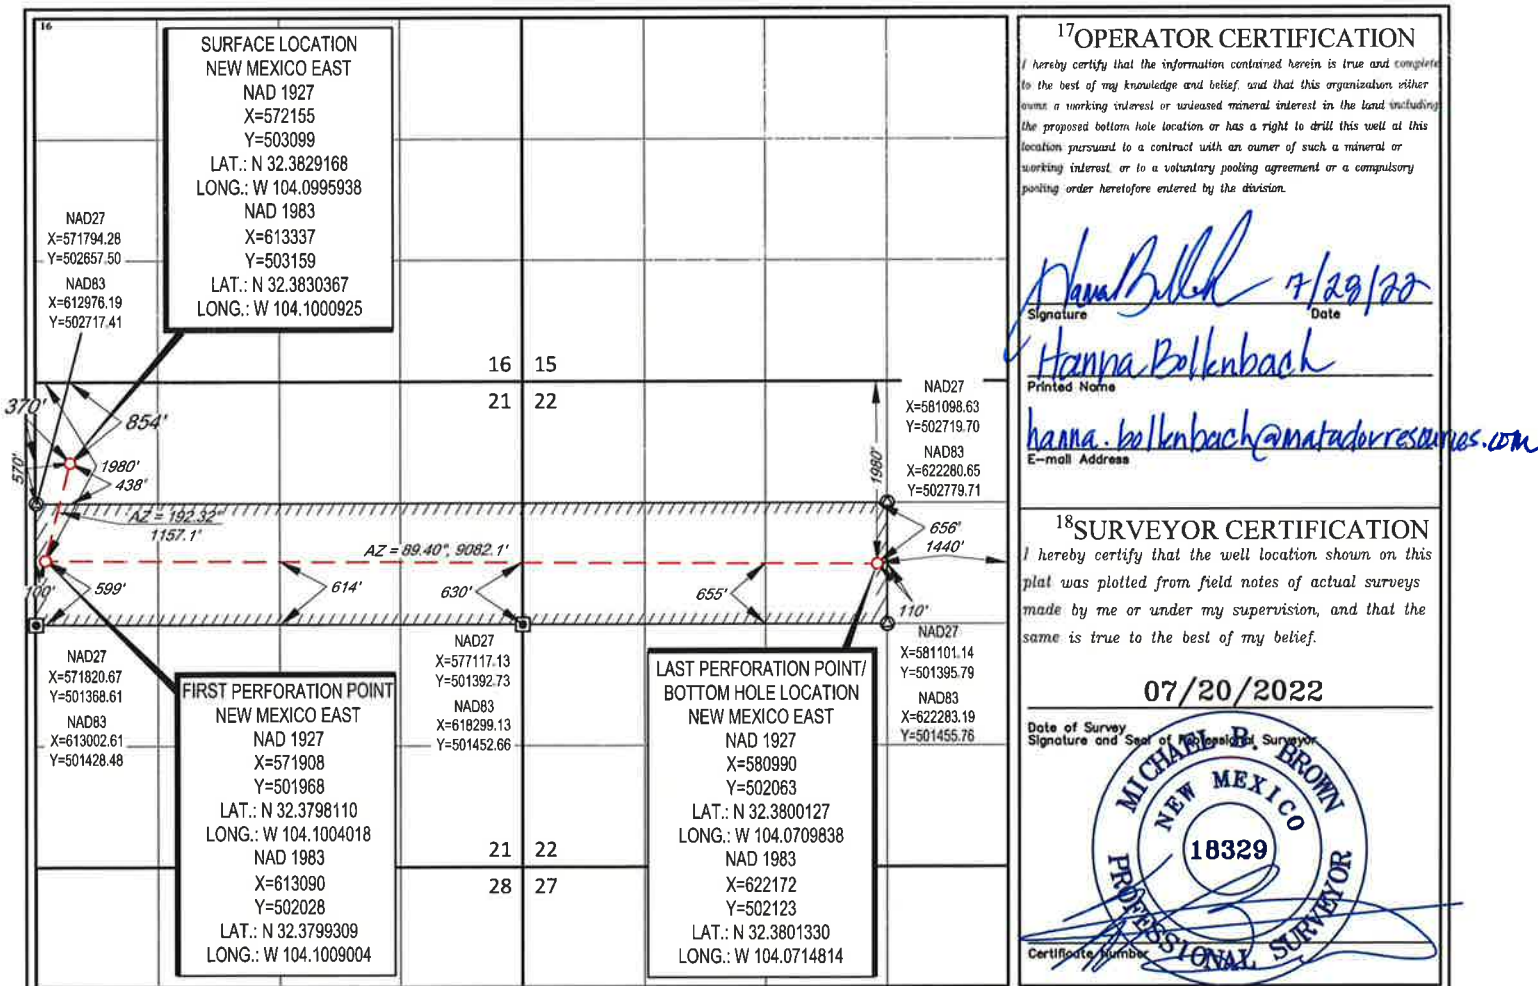 16
SURFACE LOCATION
NEW MEXICO EAST
NAD 1927
X=572155
Y=503099
LAT.: N 32.3829168
LONG.: W 104.0995938
NAD 1983
X=613337
Y=503159
LAT.: N 32.3830367
LONG.: W 104.1000925
NAD27
X=571794.28
Y=502657.50
NAD83
X=612976.19
Y=502717.41
16 15
21 22
370'
854'
570'
1980'
438'
AZ = 192.32°
1157.1'
AZ = 89.40°, 9082.1'
100'
599'
614'
630'
655'
1980'
656'
1440'
110'
NAD27
X=581098.63
Y=502719.70
NAD83
X=622280.65
Y=502779.71
NAD27
X=571820.67
Y=501368.61
NAD83
X=613002.61
Y=501428.48
FIRST PERFORATION POINT
NEW MEXICO EAST
NAD 1927
X=571908
Y=501968
LAT.: N 32.3798110
LONG.: W 104.1004018
NAD 1983
X=613090
Y=502028
LAT.: N 32.3799309
LONG.: W 104.1009004
NAD27
X=577117.13
Y=501392.73
NAD83
X=618299.13
Y=501452.66
LAST PERFORATION POINT/
BOTTOM HOLE LOCATION
NEW MEXICO EAST
NAD 1927
X=580990
Y=502063
LAT.: N 32.3800127
LONG.: W 104.0709838
NAD 1983
X=622172
Y=502123
LAT.: N 32.3801330
LONG.: W 104.0714814
NAD27
X=581101.14
Y=501395.79
NAD83
X=622283.19
Y=501455.76
21 22
28 27
17 OPERATOR CERTIFICATION
I hereby certify that the information contained herein is true and complete
to the best of my knowledge and belief, and that this organization either
owns a working interest or unleased mineral interest in the land including
the proposed bottom hole location or has a right to drill this well at this
location pursuant to a contract with an owner of such a mineral or
working interest, or to a voluntary pooling agreement or a compulsory
pooling order heretofore entered by the division.
7/28/22
Signature Date
Hanna Bollenbach
Printed Name
hanna.bollenbach@matadorresources.com
E-mail Address
18 SURVEYOR CERTIFICATION
I hereby certify that the well location shown on this
plat was plotted from field notes of actual surveys
made by me or under my supervision, and that the
same is true to the best of my belief.
07/20/2022
Date of Survey
Signature and Seal of Professional Surveyor
MICHAEL B. BROWN
NEW MEXICO
18329
PROFESSIONAL SURVEYOR
Certificate Number